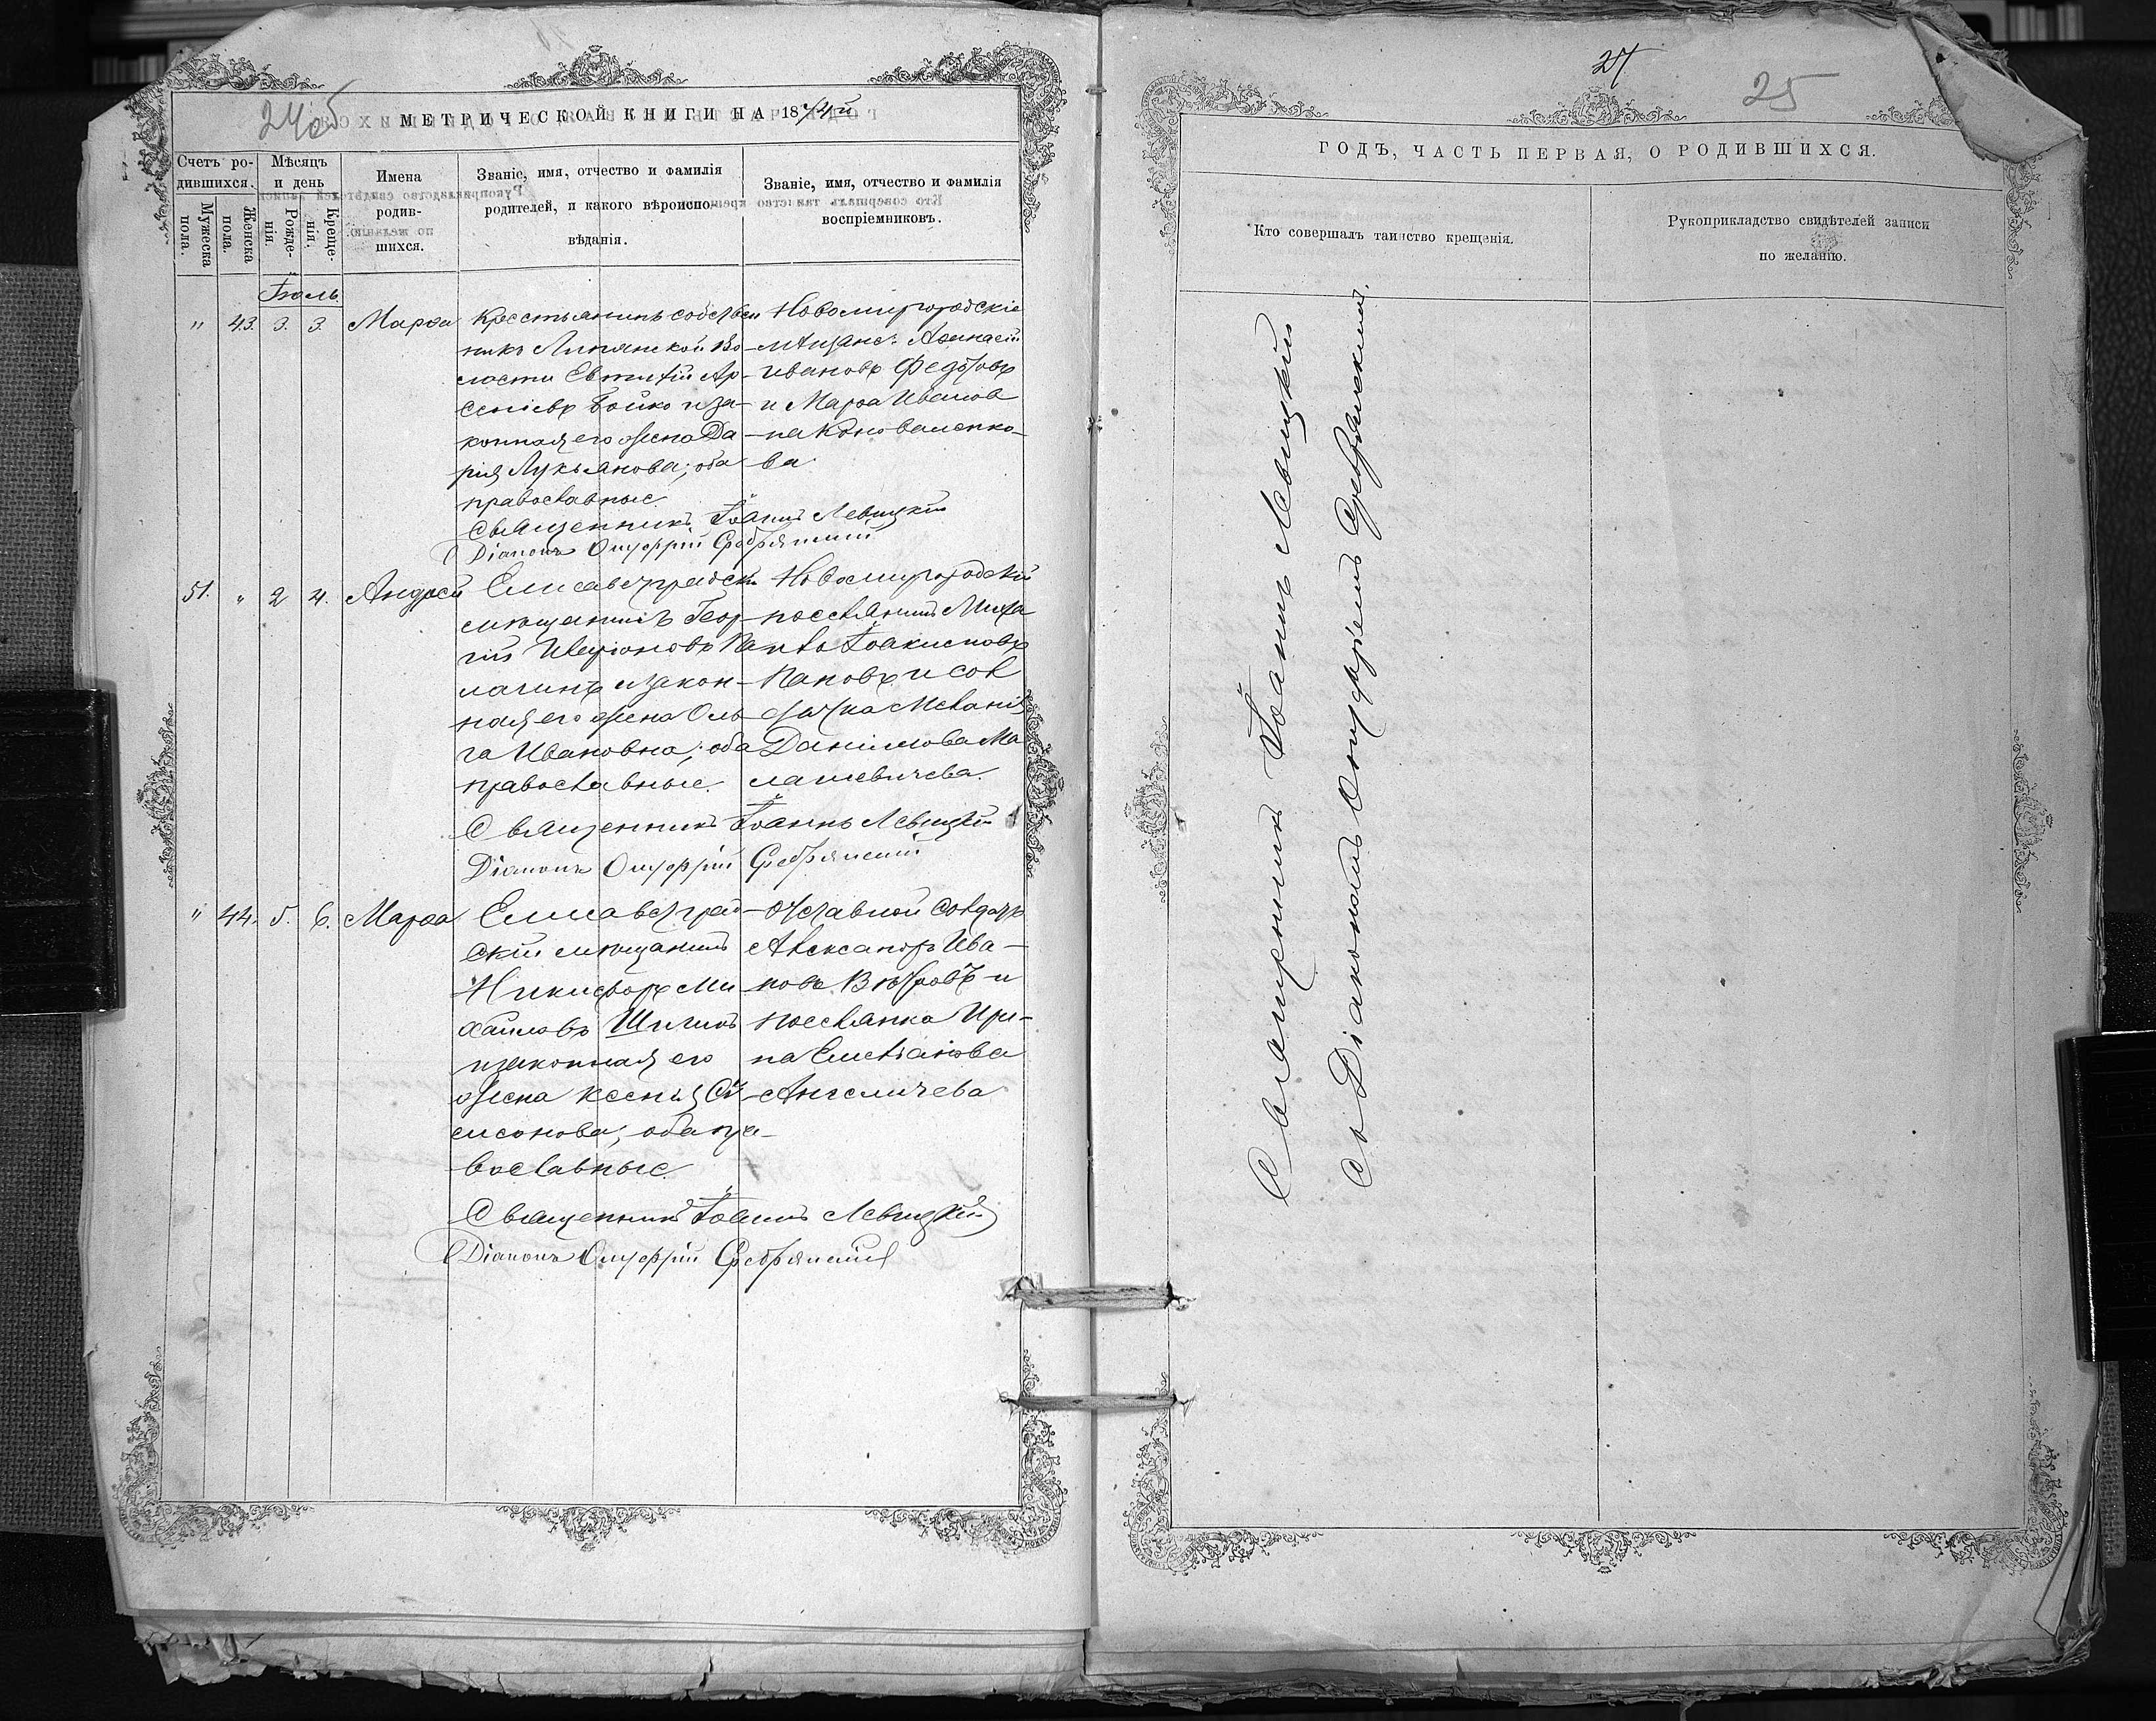 24об
МЕТРИЧЕСКОЙ КНИГИ НА 1874й
Счетъ ро-
дившихся.
Мужеска
пола.
Женска
пола.
Мѣсяцъ
и день
Рожде-
нія.
Креще-
нія.
Имена
родив-
шихся.
Званіе, имя, отчество и фамилія
родителей, и какого вѣроиспо-
вѣданія.
Званіе, имя, отчество и фамилія
воспріемниковъ.
Іюль
" 43. 3. 3. Марѳа
Крестьянинъ собствен
никъ Липянской Во-
лости Евтихій Ар-
сеніевъ Бойко и за-
конная его жена Да-
рія Лукьянова; оба
православные
Новомиргородскіе
мѣщане: Аѳанасій
Ивановъ Федотовъ
и Марѳа Иванов
на Коноваленко-
ва
Священникъ Іоаннъ Левицкій
Діаконъ Онуфрій Сребрянскій
51. " 2 4. Андрей
Елисаветградскі
мѣщанинъ Геор-
гій Иларіоновъ Па
лагинъ и закон-
ная его жена Оль
га Ивановна; оба
православные
Новомиргородскій
поселянинъ Миха
илъ Іоакимовъ
Паповъ и сол
датка Меланія
Даниилова Ма
лашевичева.
Священникъ Іоаннъ Левицкій
Діаконъ Онуфрій Сребрянскій
" 44. 5. 6. Марѳа
Елисаветград-
скій мѣщанинъ
Никифоръ Ми
хаиловъ Шигинъ
и законная его
жена Ксенія Си
мсонова; оба пра-
вославные
Отставной солдатъ
Александръ Ива-
новъ Вѣтровъ и
поселянка Ири-
на Емеліанова
Ангеличева
Священникъ Іоаннъ Левицкій
Діаконъ Онуфрій Сребрянскій
27
25
ГОДЪ, ЧАСТЬ ПЕРВАЯ, О РОДИВШИХСЯ.
Кто совершалъ таинство крещенія.
Рукоприкладство свидѣтелей записи
по желанію.
Священникъ Іоаннъ Левицкій
съ Діакономъ Онуфріемъ Сребрянскимъ.